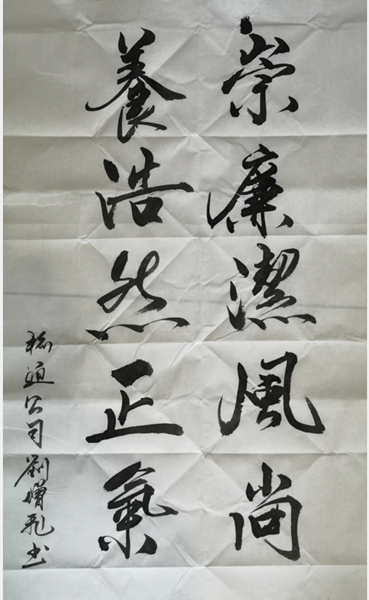 崇廉潔風尚
養浩然正氣
公司劉增書